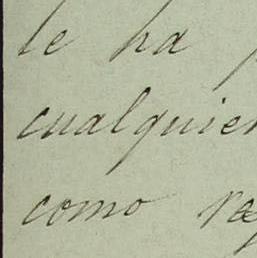 le ha
cualquier
como